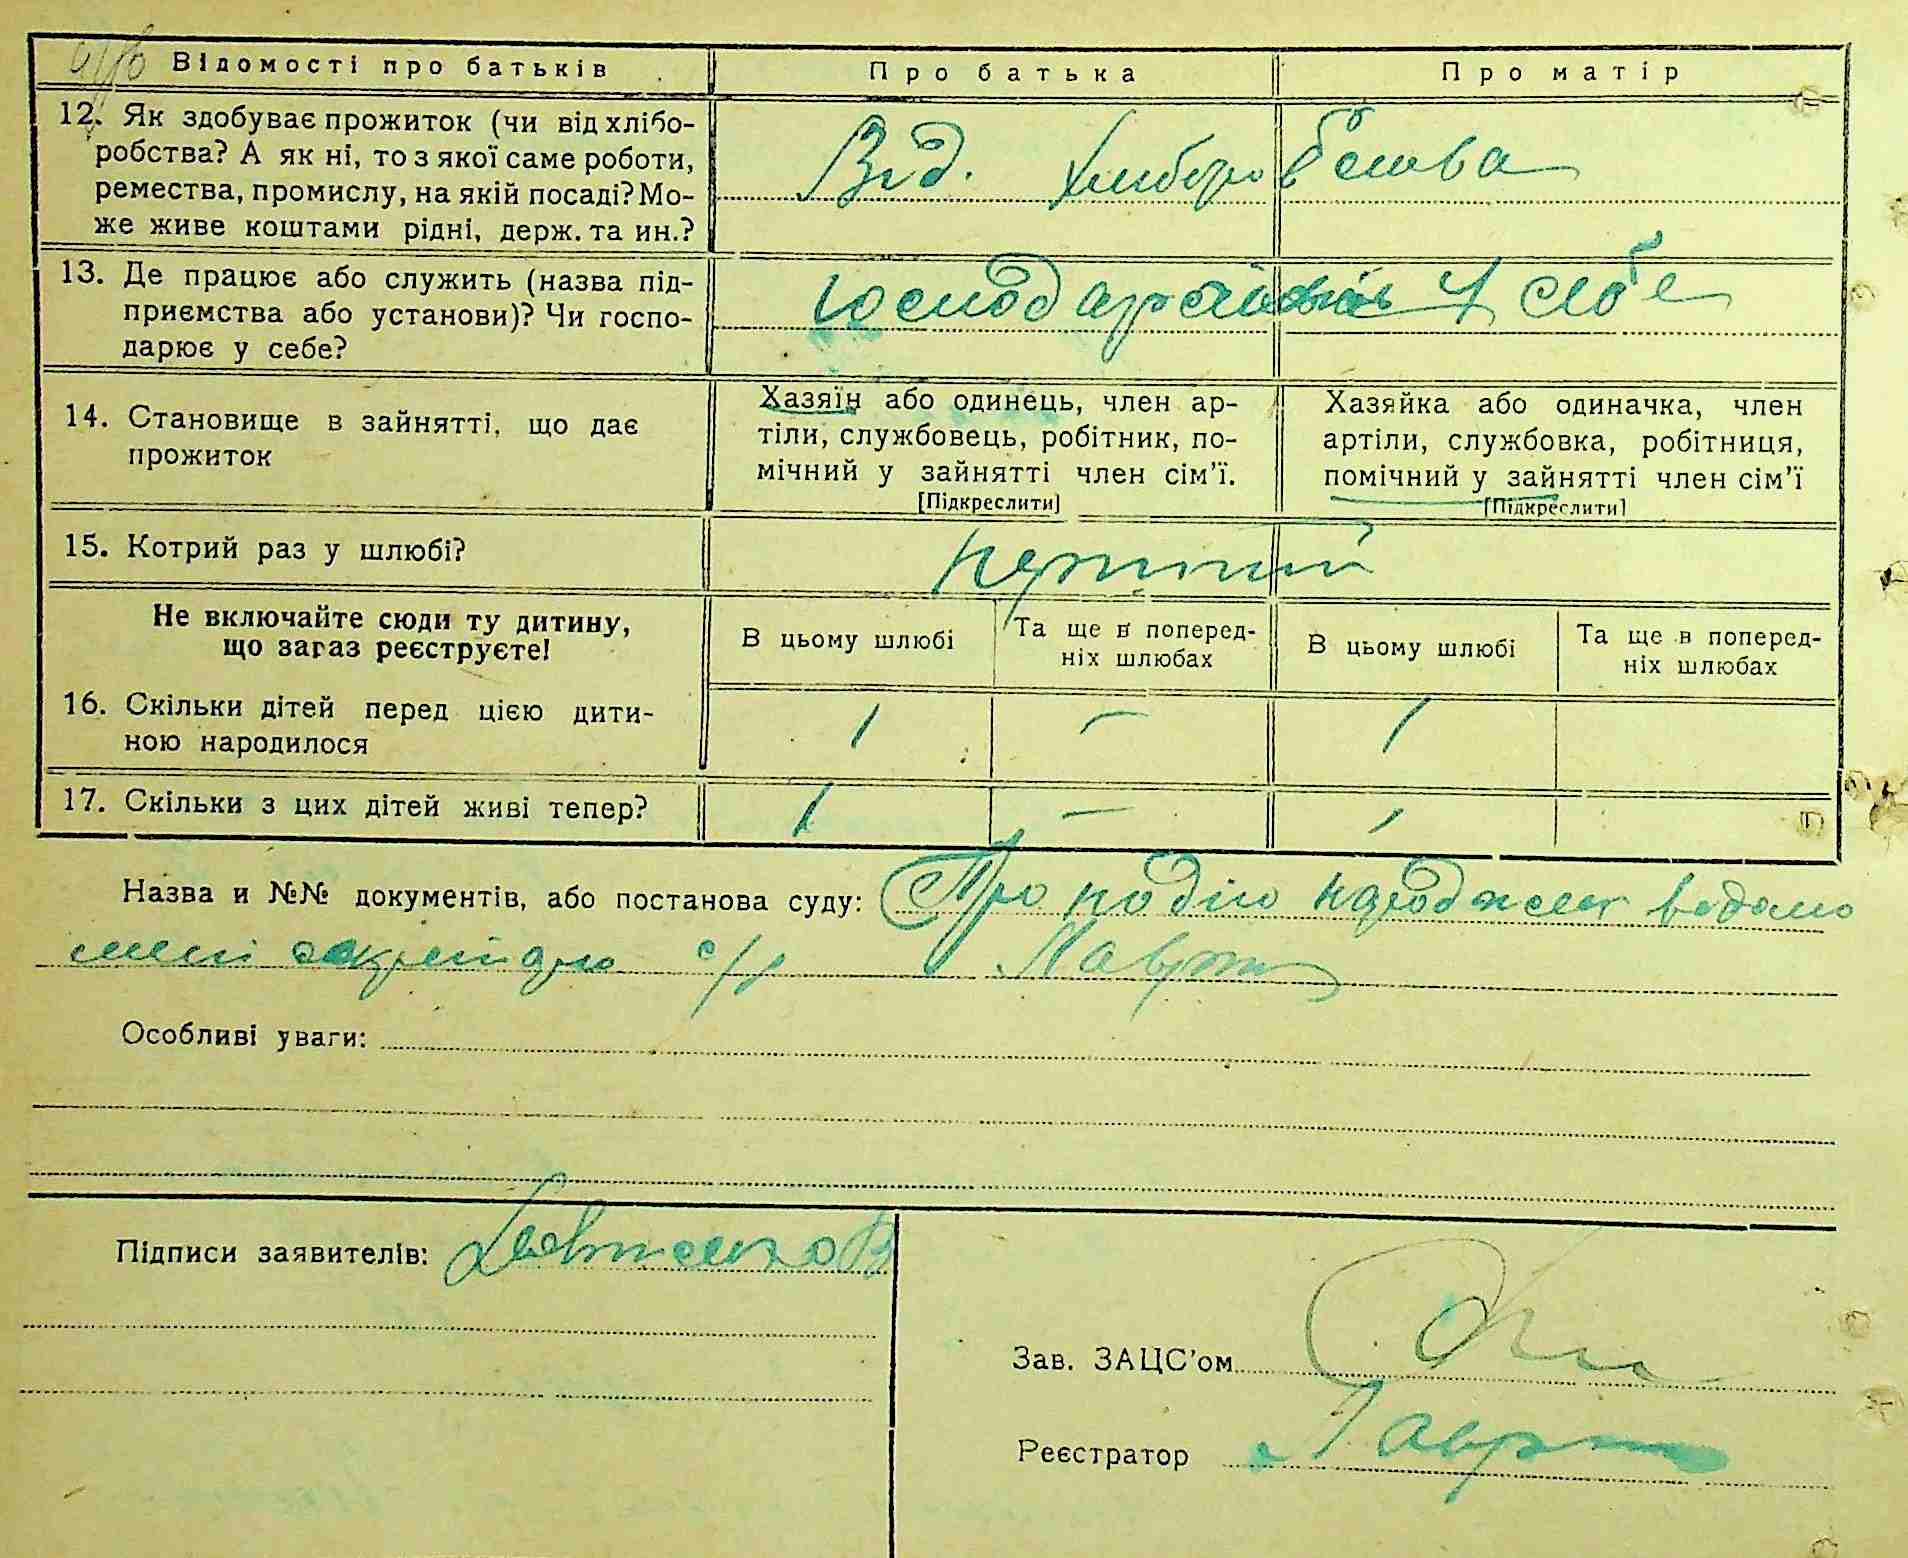 Відомості про батьків
Про батька
Про матір
12. Як здобуває прожиток (чи від хлібо-
робства? А як ні, то з якої саме роботи,
ремества, промислу, на якій посаді? Мо-
же живе коштами рідні, держ. та ин.?
Від. хліборобства
13. Де працює або служить (назва під-
приємства або установи)? Чи госпо-
дарює у себе?
у себе
14. Становище в зайнятті, що дає
прожиток
Хазяїн або одинець, член ар-
тіли, службовець, робітник, по-
мічний у зайнятті член сім'ї.
[Підкреслити]
Хазяйка або одиначка, член
артіли, службовка, робітниця,
помічний у зайнятті член сім'ї
[Підкреслити]
15. Котрий раз у шлюбі?
перший
Не включайте сюди ту дитину,
що зараз реєструєте!
В цьому шлюбі
Та ще в поперед-
ніх шлюбах
В цьому шлюбі
Та ще в поперед-
ніх шлюбах
16. Скільки дітей перед цією дити-
ною народилося
1 — 1
17. Скільки з цих дітей живі тепер?
1 — 1
Назва и №№ документів, або постанова суду: Про подію народжен відомо
мені секретарю с/р Лавр
Особливі уваги:
Підписи заявителів:
Зав. ЗАЦС'ом
Реєстратор Лавр